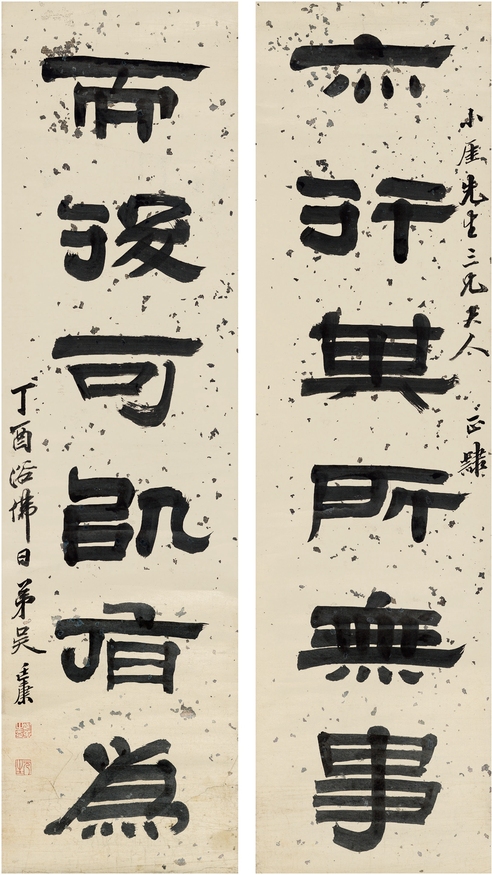 小厓先生三兄大人 正隸
亦行其所無事
而後可以有為
丁酉浴佛日弟吳廷康